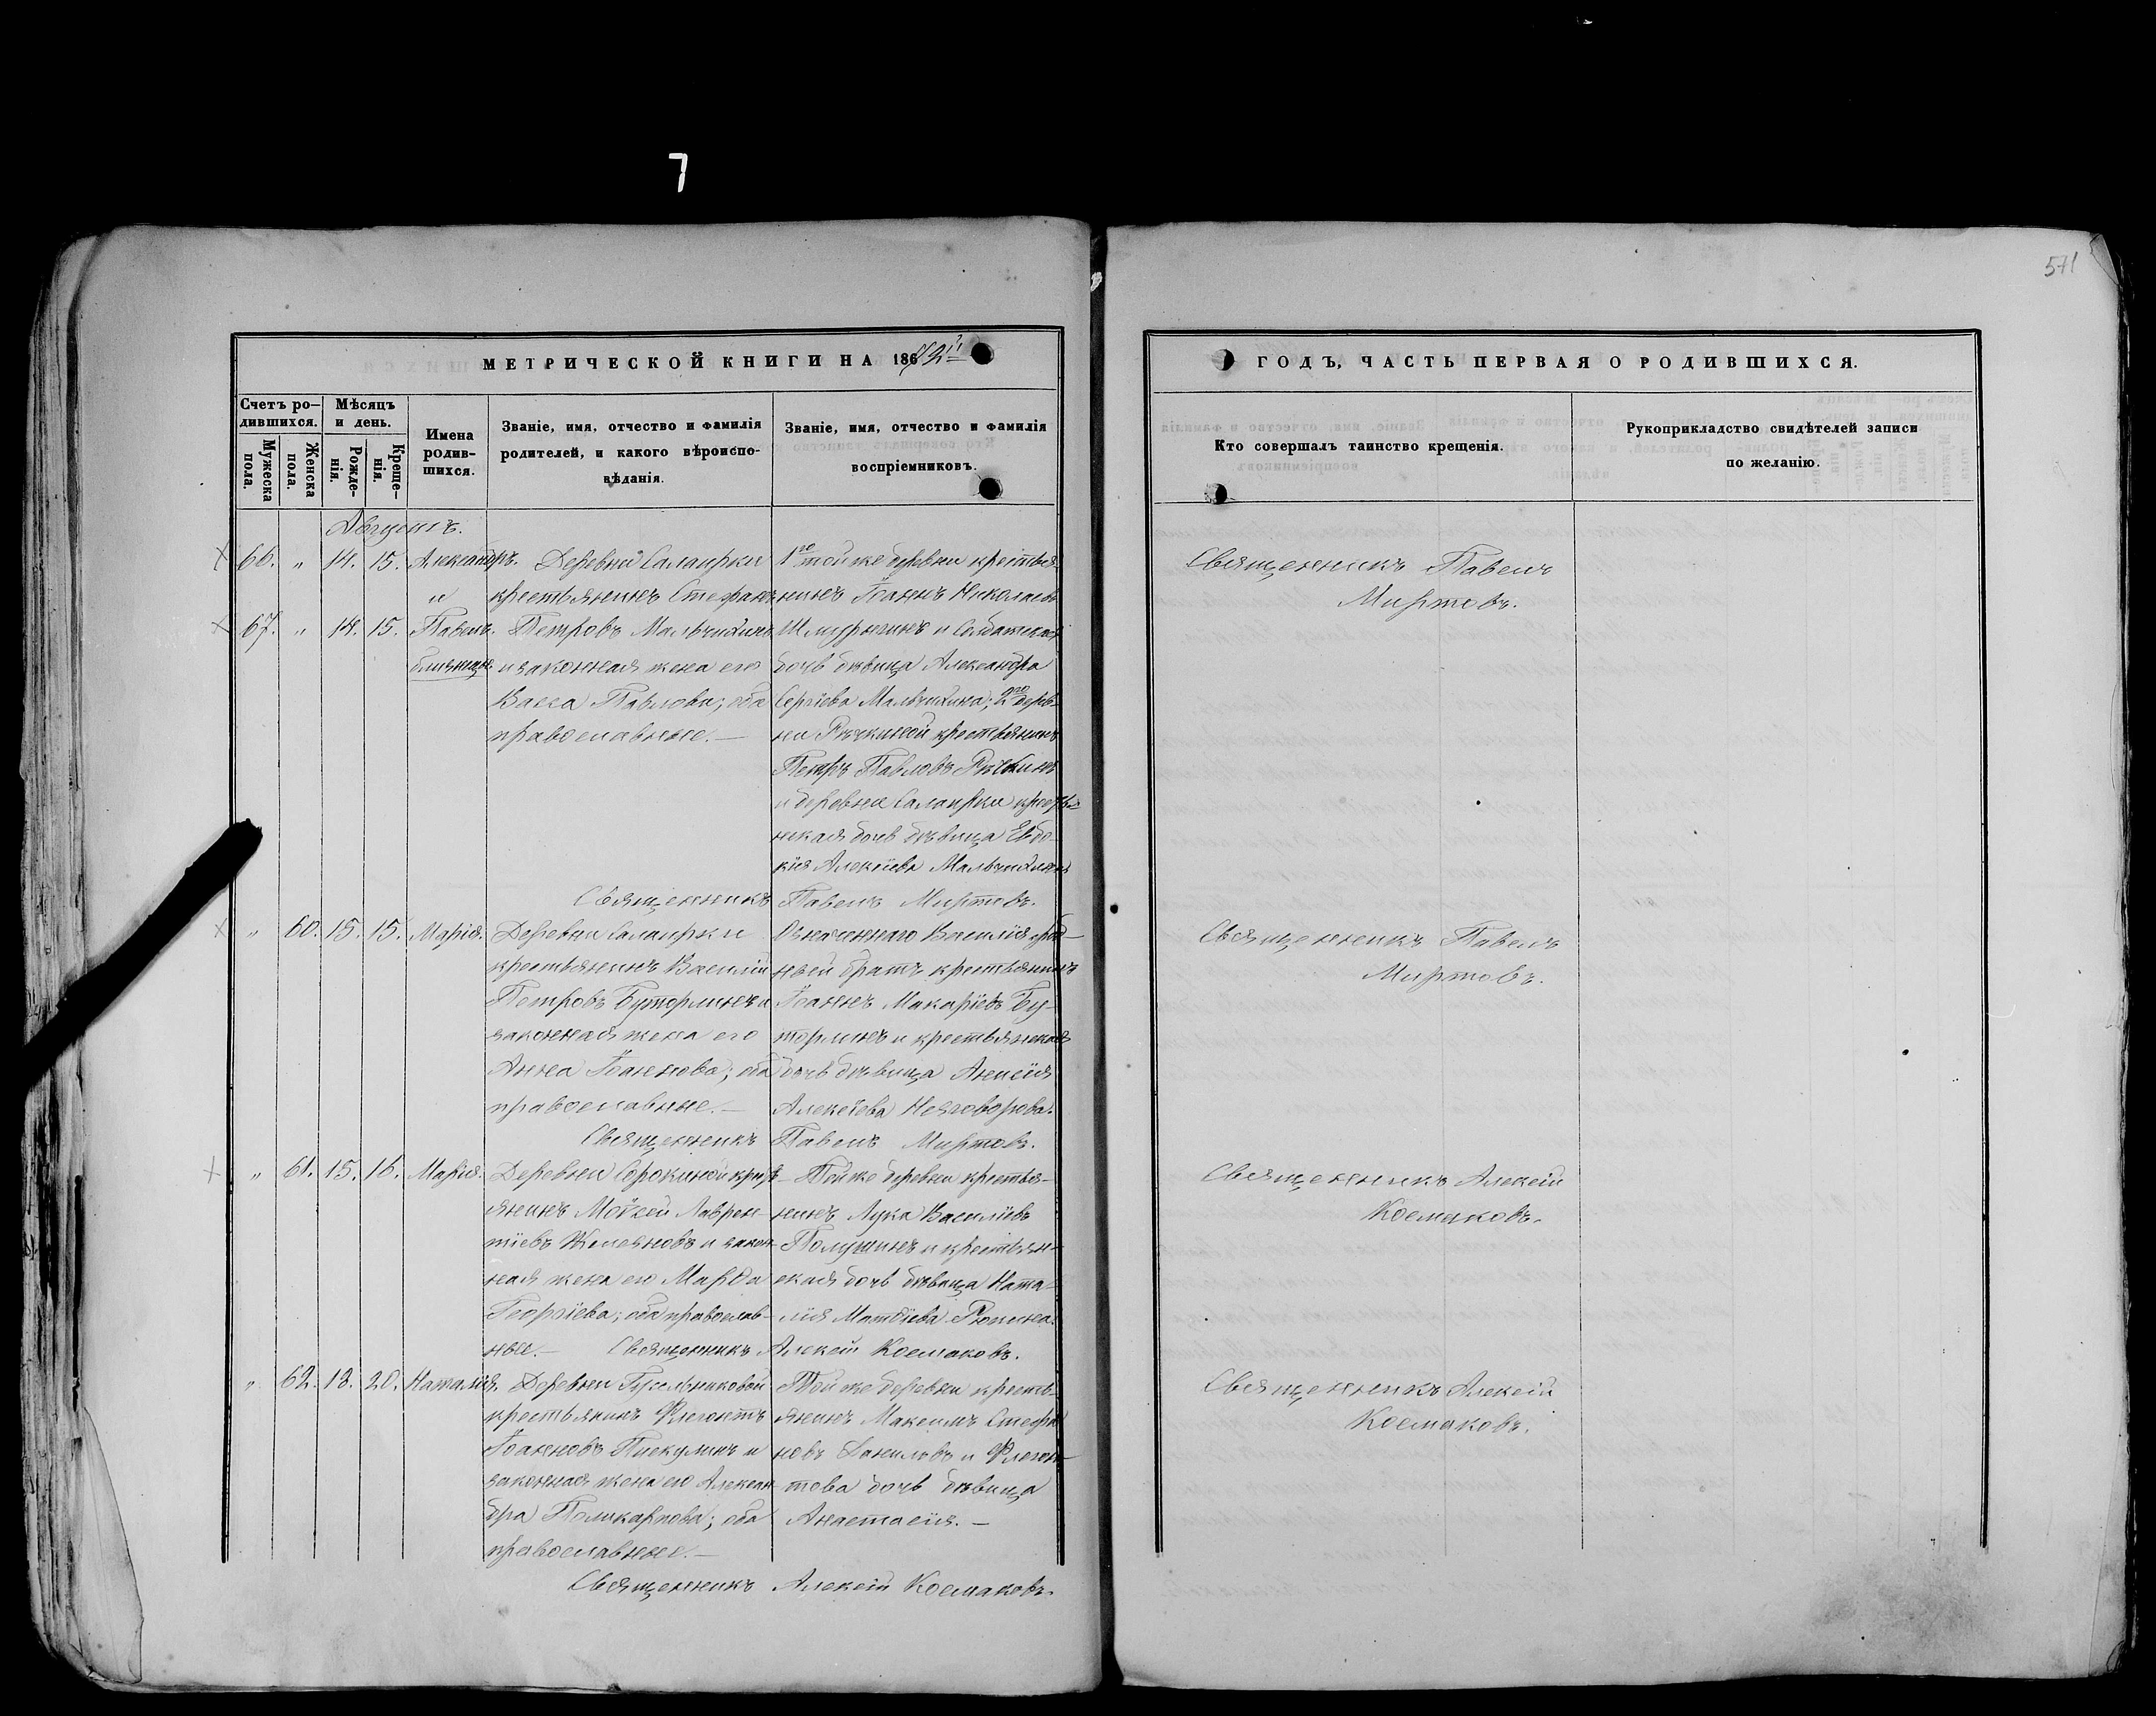 7
571
МЕТРИЧЕСКОЙ КНИГИ НА 186
ГОДЪ, ЧАСТЬ ПЕРВАЯ О РОДИВШИХСЯ.
Счетъ ро-
дившихся.
Мужеска пола.
Женска пола.
Мѣсяцъ
и день.
Рожде-
нія.
Креще-
нія.
Имена
родив-
шихся.
Званіе, имя, отчество и фамилія
родителей, и какого вѣроиспо-
вѣданія.
Званіе, имя, отчество и фамилія
воспріемниковъ.
Кто совершалъ таинство крещенія.
Рукоприкладство свидѣтелей записи
по желанію.
Августъ.
66. " 14. 15. Александръ.
и
67. " 14. 15. Павелъ.
близнецы.
Деревни Салаирки
крестьянинъ Стефанъ
Петровъ Мальчихинъ
и законная жена его
Васса Павлова; оба
православные.—
1го той же деревни крестья-
нинъ Іоаннъ Николаевъ
и Солдатская
дочь дѣвица Александра
Сергіева Мальчихина; 2го дерев-
ни Рѣчкиной крестьянинъ
Петръ Павловъ Рѣчкинъ
и деревни Салаирки крестья-
нская дочь дѣвица Евдо-
кія Алексіева Мальчихина
Священникъ Павелъ Миртовъ.
Священникъ Павелъ
Миртовъ.
" 60. 15. 15. Марія.
Деревни Салаирки
крестьянинъ Василій
Петровъ Буторлинъ и
законная жена его
Анна Іоаннова; оба
православные.—
Означеннаго Василія
братъ крестьянинъ
Іоаннъ Макаріевъ Бу-
торлинъ и крестьянская
дочь дѣвица Анисія
Алексіева Неговорова.
Священникъ Павелъ Миртовъ.
Священникъ Павелъ
Миртовъ.
" 61. 15. 16. Марія.
Деревни Сорокиной крест-
янинъ Моѵсей Лаврен-
тіевъ и закон-
ная жена его Марѳа
Георгіева; оба православ-
ные.—
Той же деревни крестья-
нинъ Лука Василіевъ
Полушинъ и крестьян-
ская дочь дѣвица Ната-
лія Матѳіева Рюпина.
Священникъ Алексій Космаковъ.
Священникъ Алексій
Космаковъ.
" 62. 18. 20. Наталія.
Деревни Гусельниковой
крестьянинъ Флегонтъ
Іоанновъ Пискулинъ и
законная жена его Алексан-
дра Поликарпова; оба
православные.—
Той же деревни кресть-
янинъ Максимъ Стефа-
новъ Даниловъ и Флегон-
това дочь дѣвица
Анастасія.—
Священникъ Алексій Космаковъ.
Священникъ Алексій
Космаковъ.